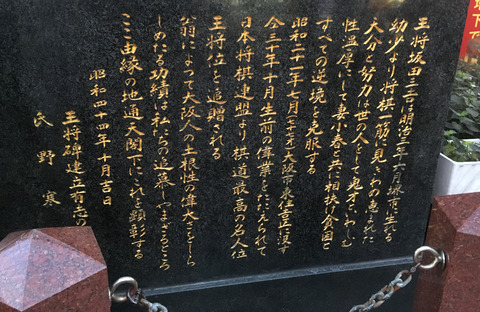 王将坂田三吉は明治三年六月堺市に生れる
幼少より将棋一筋に見きわめ恵まれた
天分と努力は世の人をして鬼才といわしむ
性温厚にして妻小春と共に相扶け貧困と
すべての逆境を克服する
昭和二十一年七月(七十七才)大阪市東住吉に没す
仝三十年十月生前の偉業をたたえられて
日本将棋連盟より棋道最高の名人位
王将位を追贈される
翁によって大阪人の土根性の偉大さをしら
しめたる功績は私たちの追慕しつまざるところ
ここ由縁の地通天閣下にこれを顕彰する
昭和四十四年十月吉日
王将碑建立有志の
氏野寒